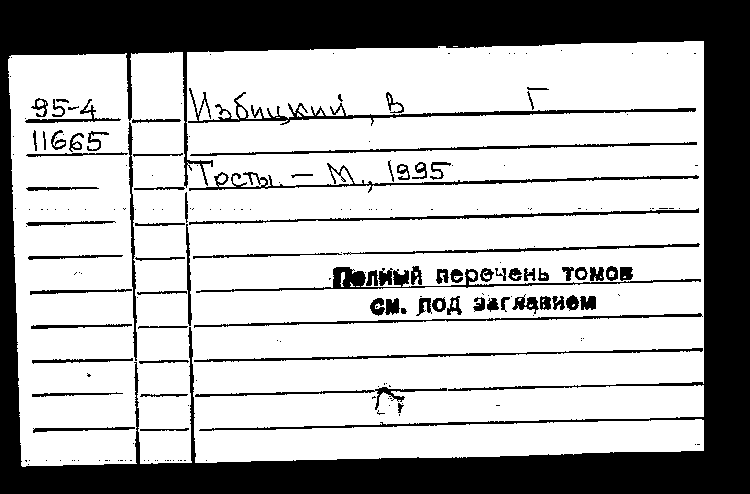 95-4 Избицкий, В Г
11665
Тосты. – М., 1995
Полный перечень томов
см. под заглавием